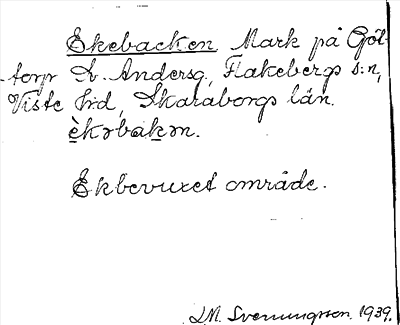 Ekebacken. Mark på Göt-
torp L. Andersg., Flakebergs s:n,
Viste hd, Skaraborgs län.
èkəbakən.
Ekbevuxet område.
I.M. Svenungsson. 1939.